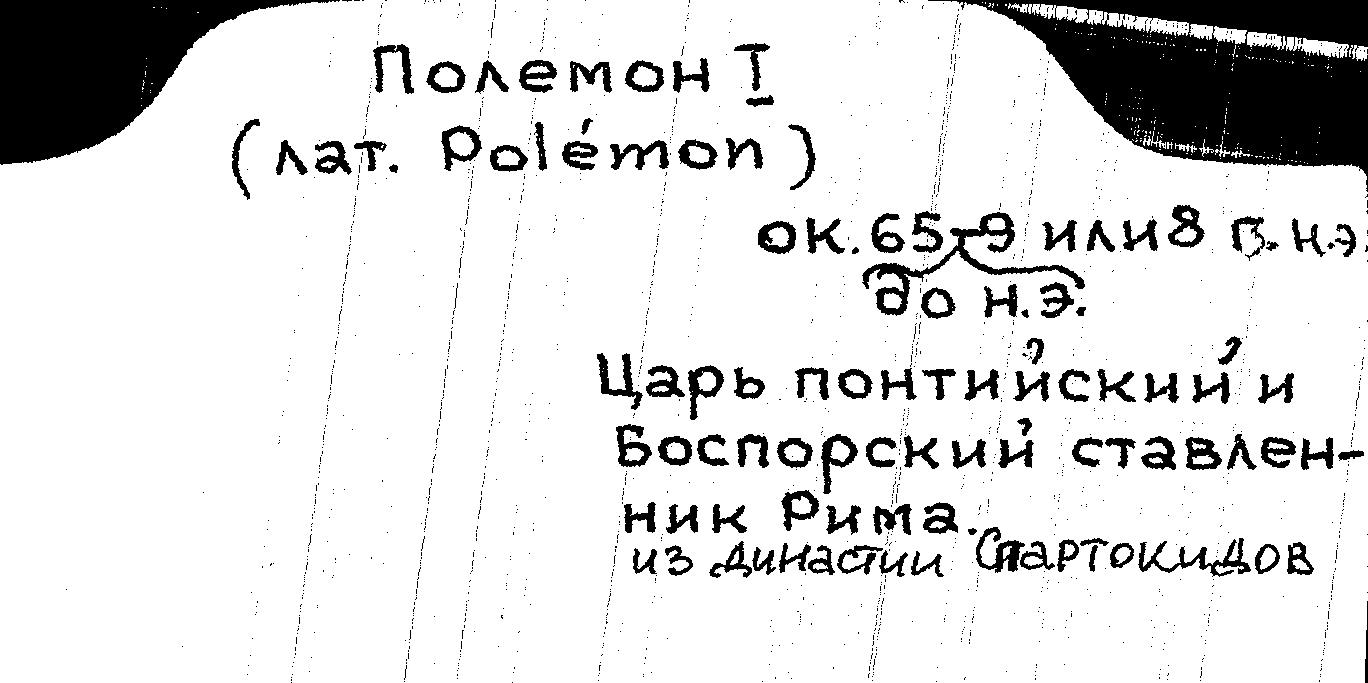 Полемон I
(лат. Polémon)
ок. 65-9 или 8 в. н.э.
до н.э.
Царь понтийский и
Боспорский ставлен-
ник Рима.
из династии Спартокидов